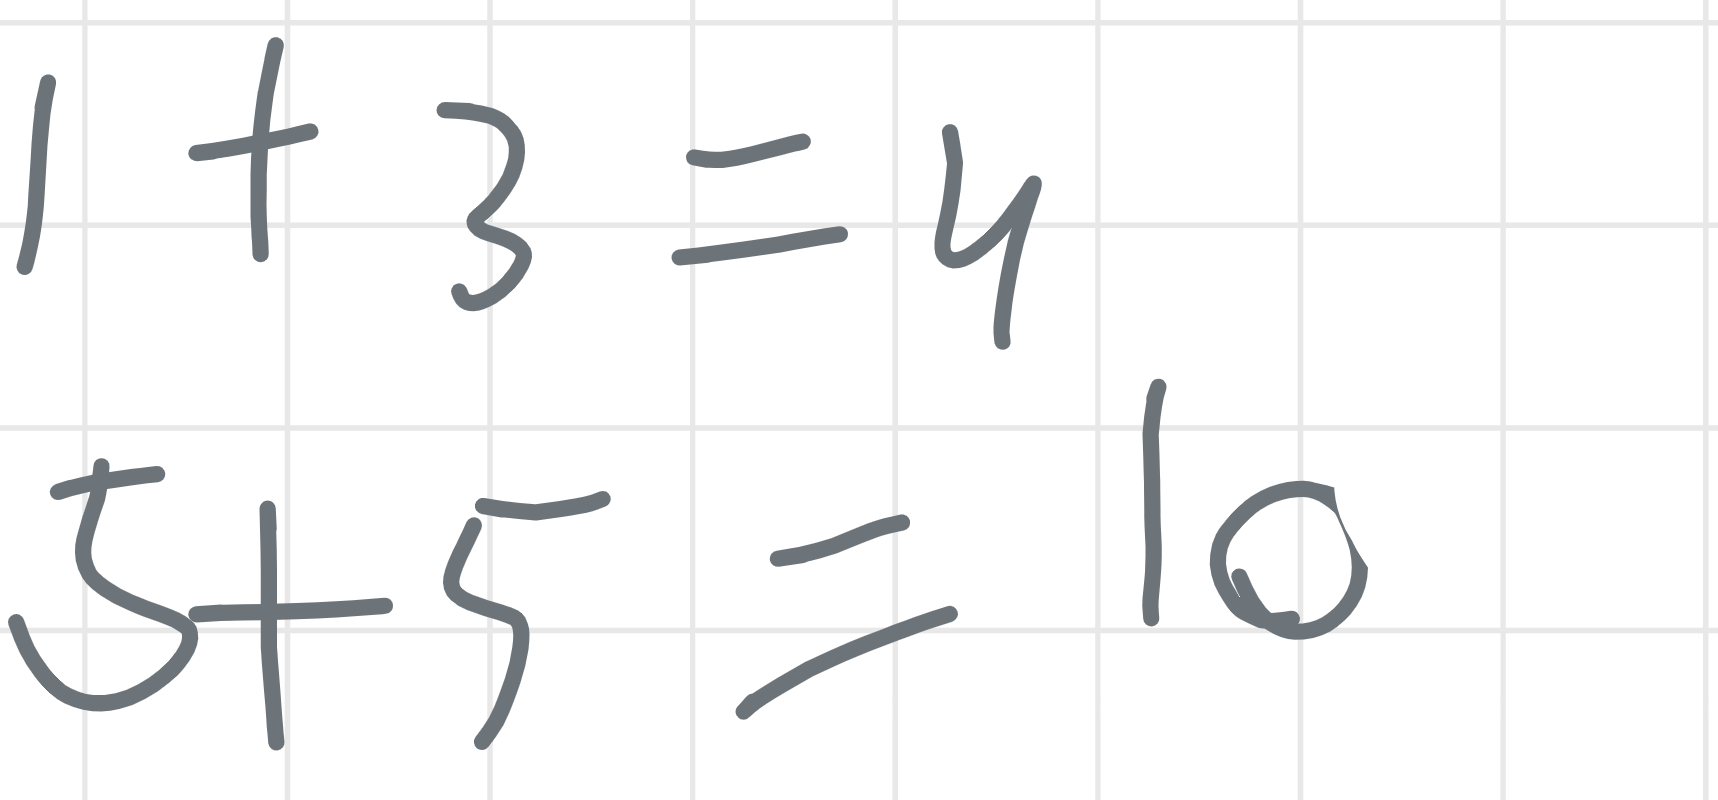 1 + 3 = 4
5 + 5 = 10